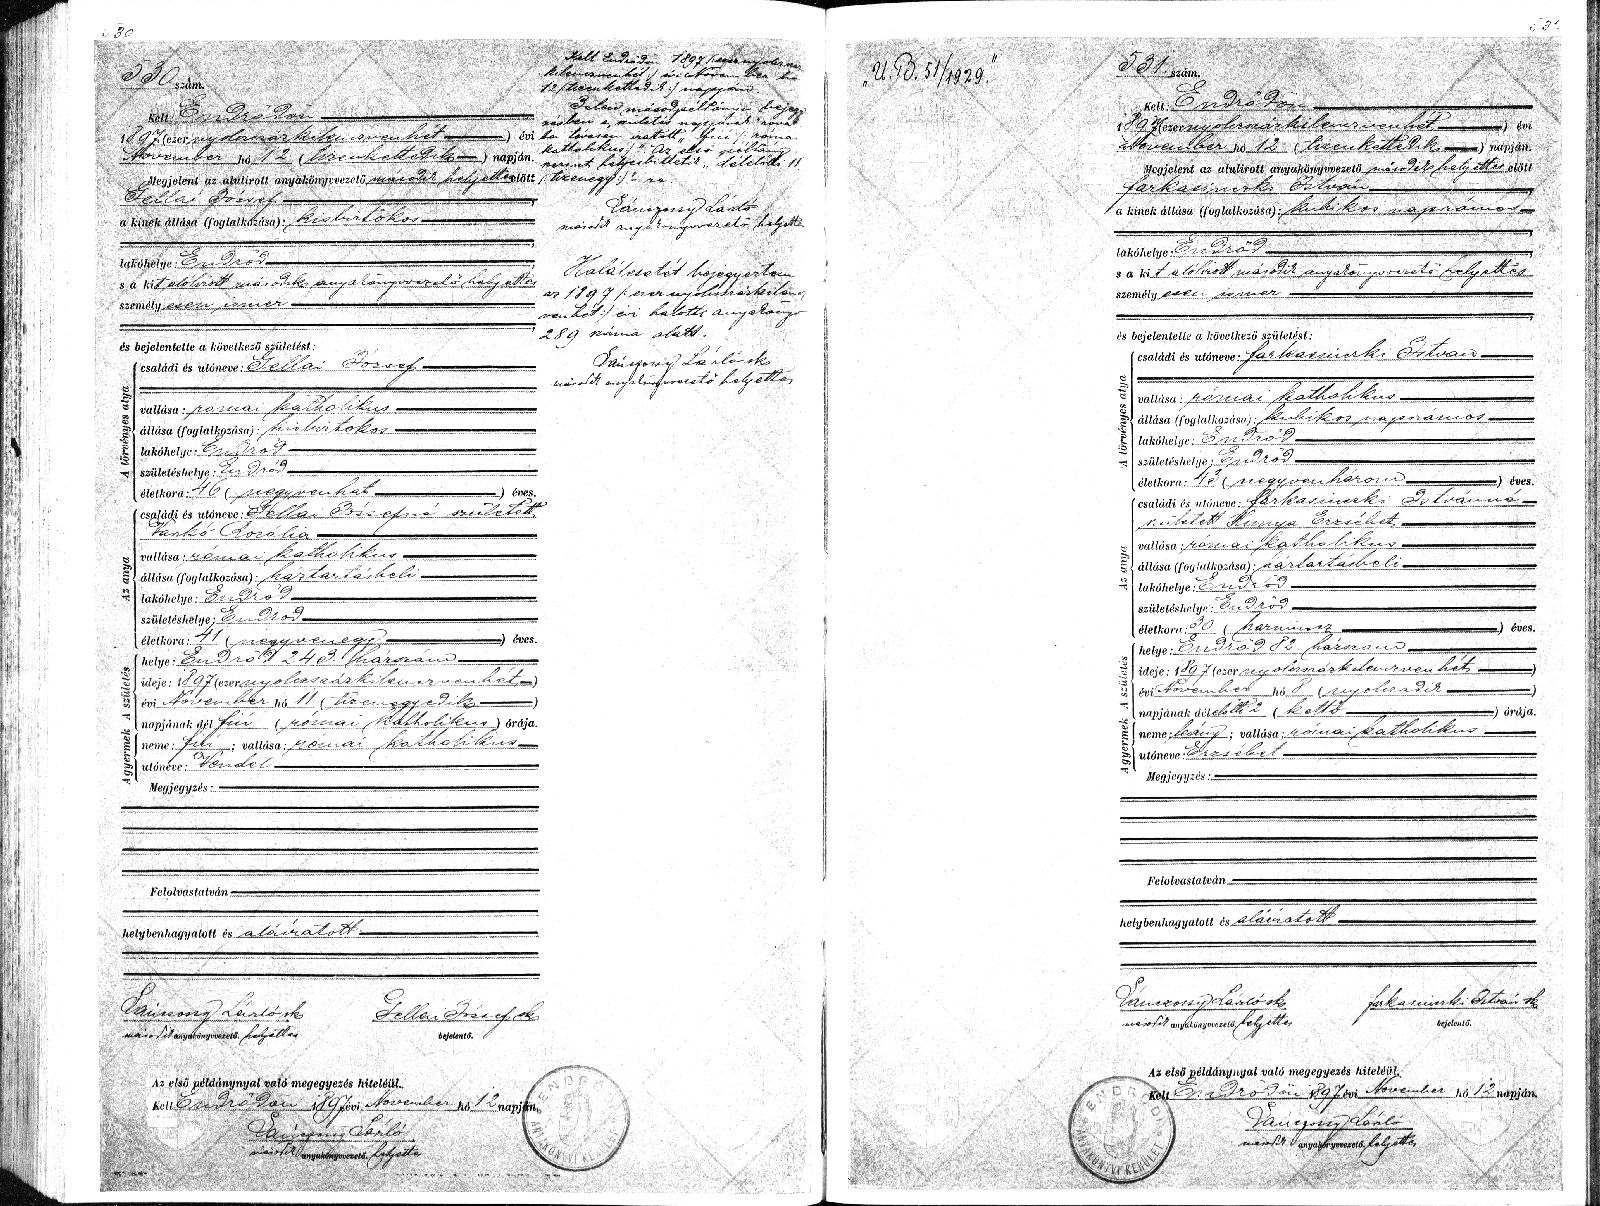 530
530 szám.
Kelt Endrődön
1897 (ezernyolcszázkilencvenhét) évi
November hó 12 (tizenkettedik) napján.
Megjelent az alulirott anyakönyvvezető második helyettes előtt
Gellai József
a kinek állása (foglalkozása): kisbirtokos
lakóhelye: Endrőd
s a kit alólirott második anyakönyvvezető helyettes
személyesen ismer
és bejelentette a következő születést:
A törvényes atya
családi és utóneve: Gellai József
vallása: római katholikus
állása (foglalkozása): kisbirtokos
lakóhelye: Endrőd
születéshelye: Endrőd
életkora: 46 (negyvenhat) éves.
Az anya
családi és utóneve: Gellai Józsefné született
Vankó Rozália
vallása: római katholikus
állása (foglalkozása): háztartásbeli
lakóhelye: Endrőd
születéshelye: Endrőd
életkora: 41 (negyvenegy) éves.
A születés
helye: Endrőd 243. házszám
ideje: 1897 (ezernyolcszázkilencvenhét)
évi November hó 11 (tizenegyedik)
napjának dél fiú (római katholikus) órája.
A gyermek
neme: fiú; vallása: római katholikus
utóneve: Vendel
Megjegyzés:
Felolvastatván
helybenhagyatott és aláiratott
Lánczossy László sk
Gellai József sk
második anyakönyvvezető. helyettes
bejelentő.
Az első példánynyal való megegyezés hiteléül.
Kelt Endrődön 1897 évi November hó 12 napján.
Lánczossy László
második anyakönyvvezető. helyettes
ENDRŐDI
ANYAKÖNYVI KERÜLET
Kelt Endrődön 1897 (ezernyolcszáz
kilencvenhét) évi November hó
12 (tizenkettedik) napján.
Jelen másodpéldányi bejegy
zésben a születés napjának óra
ba tévesen iratott „fiú (római
katholikus)" Az első példány
szerint helyesbittetik „délelőtt 11
(tizenegy)" ra
Lánczossy László
második anyakönyvvezető helyettes
Halálesetét bejegyeztem
az 1897 (ezernyolcszázkilenc
venhét) évi halotti anyakönyv
289 száma alatt.
Lánczossy László sk
második anyakönyvvezető helyettes
„U. B. 51/1929."
531
531 szám.
Kelt Endrődön
1897 (ezernyolcszázkilencvenhét) évi
November hó 12 (tizenkettedik) napján.
Megjelent az alulirott anyakönyvvezető második helyettes előtt
Farkasinszki István
a kinek állása (foglalkozása): kubikos napszámos
lakóhelye: Endrőd
s a kit alólirott második anyakönyvvezető helyettes
személyesen ismer
és bejelentette a következő születést:
A törvényes atya
családi és utóneve: Farkasinszki István
vallása: római katholikus
állása (foglalkozása): kubikos napszámos
lakóhelye: Endrőd
születéshelye: Endrőd
életkora: 43 (negyvenhárom) éves.
Az anya
családi és utóneve: Farkasinszki Istvánné
született Hunya Erzsébet
vallása: római katholikus
állása (foglalkozása): háztartásbeli
lakóhelye: Endrőd
születéshelye: Endrőd
életkora: 30 (harmincz) éves.
A születés
helye: Endrőd 82 házszám
ideje: 1897 (ezernyolcszázkilencvenhét)
évi November hó 8 (nyolczadik)
napjának délelőtt 2 (kettő) órája.
A gyermek
neme: leány; vallása: római katholikus
utóneve: Erzsébet
Megjegyzés:
Felolvastatván
helybenhagyatott és aláiratott
Lánczossy László sk
Farkasinszki István sk
második anyakönyvvezető. helyettes
bejelentő.
Az első példánynyal való megegyezés hiteléül.
Kelt Endrődön 1897 évi November hó 12 napján.
Lánczossy László
második anyakönyvvezető. helyettes
ENDRŐDI
ANYAKÖNYVI KERÜLET